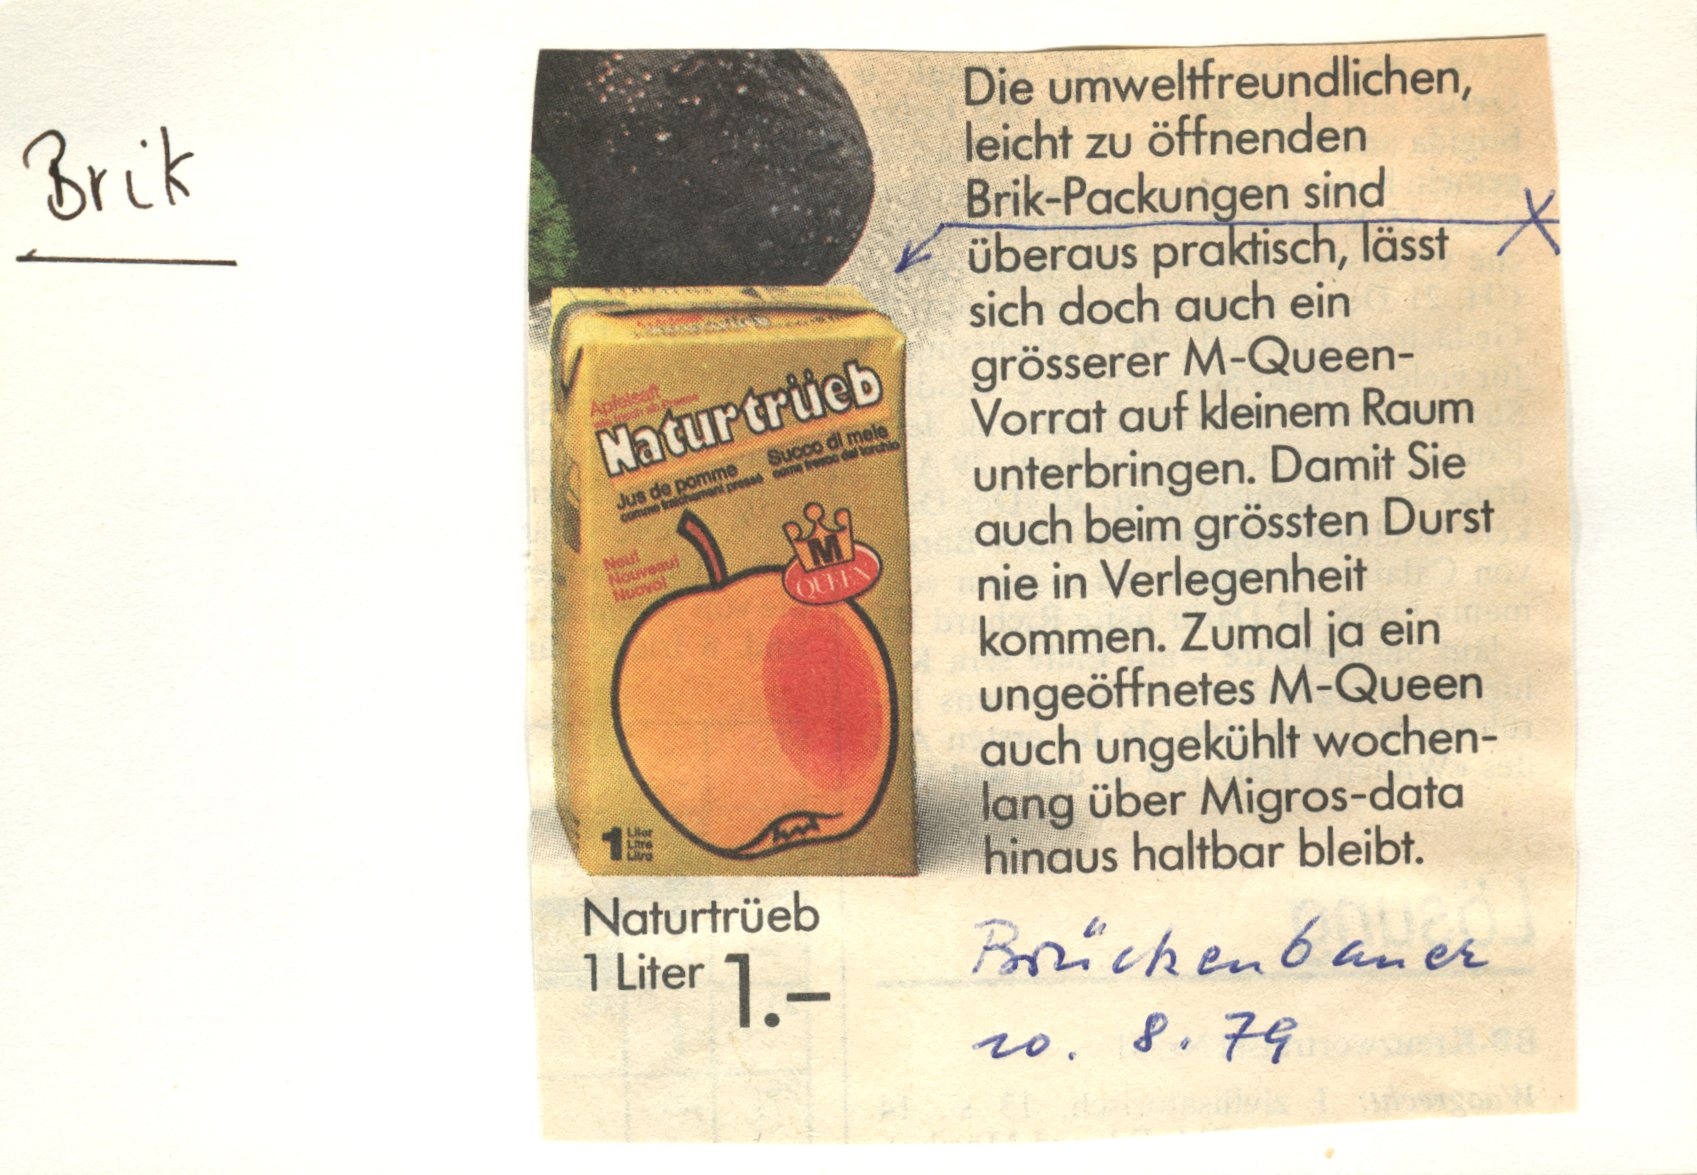 Brik
Die umweltfreundlichen,
leicht zu öffnenden
Brik-Packungen sind
überaus praktisch, lässt
sich doch auch ein
grösserer M-Queen-
Vorrat auf kleinem Raum
unterbringen. Damit Sie
auch beim grössten Durst
nie in Verlegenheit
kommen. Zumal ja ein
ungeöffnetes M-Queen
auch ungekühlt wochen-
lang über Migros-data
hinaus haltbar bleibt.
Apfelsaft
Naturtrüeb
Jus de pomme
comme fraîchement pressé
Succo di mele
come fresco dal torchio
M
QUEEN
Neu!
Nouveau!
Nuovo!
1 Liter
Litre
Litro
Naturtrüeb
1 Liter 1.–
Brückenbauer
10. 8. 79